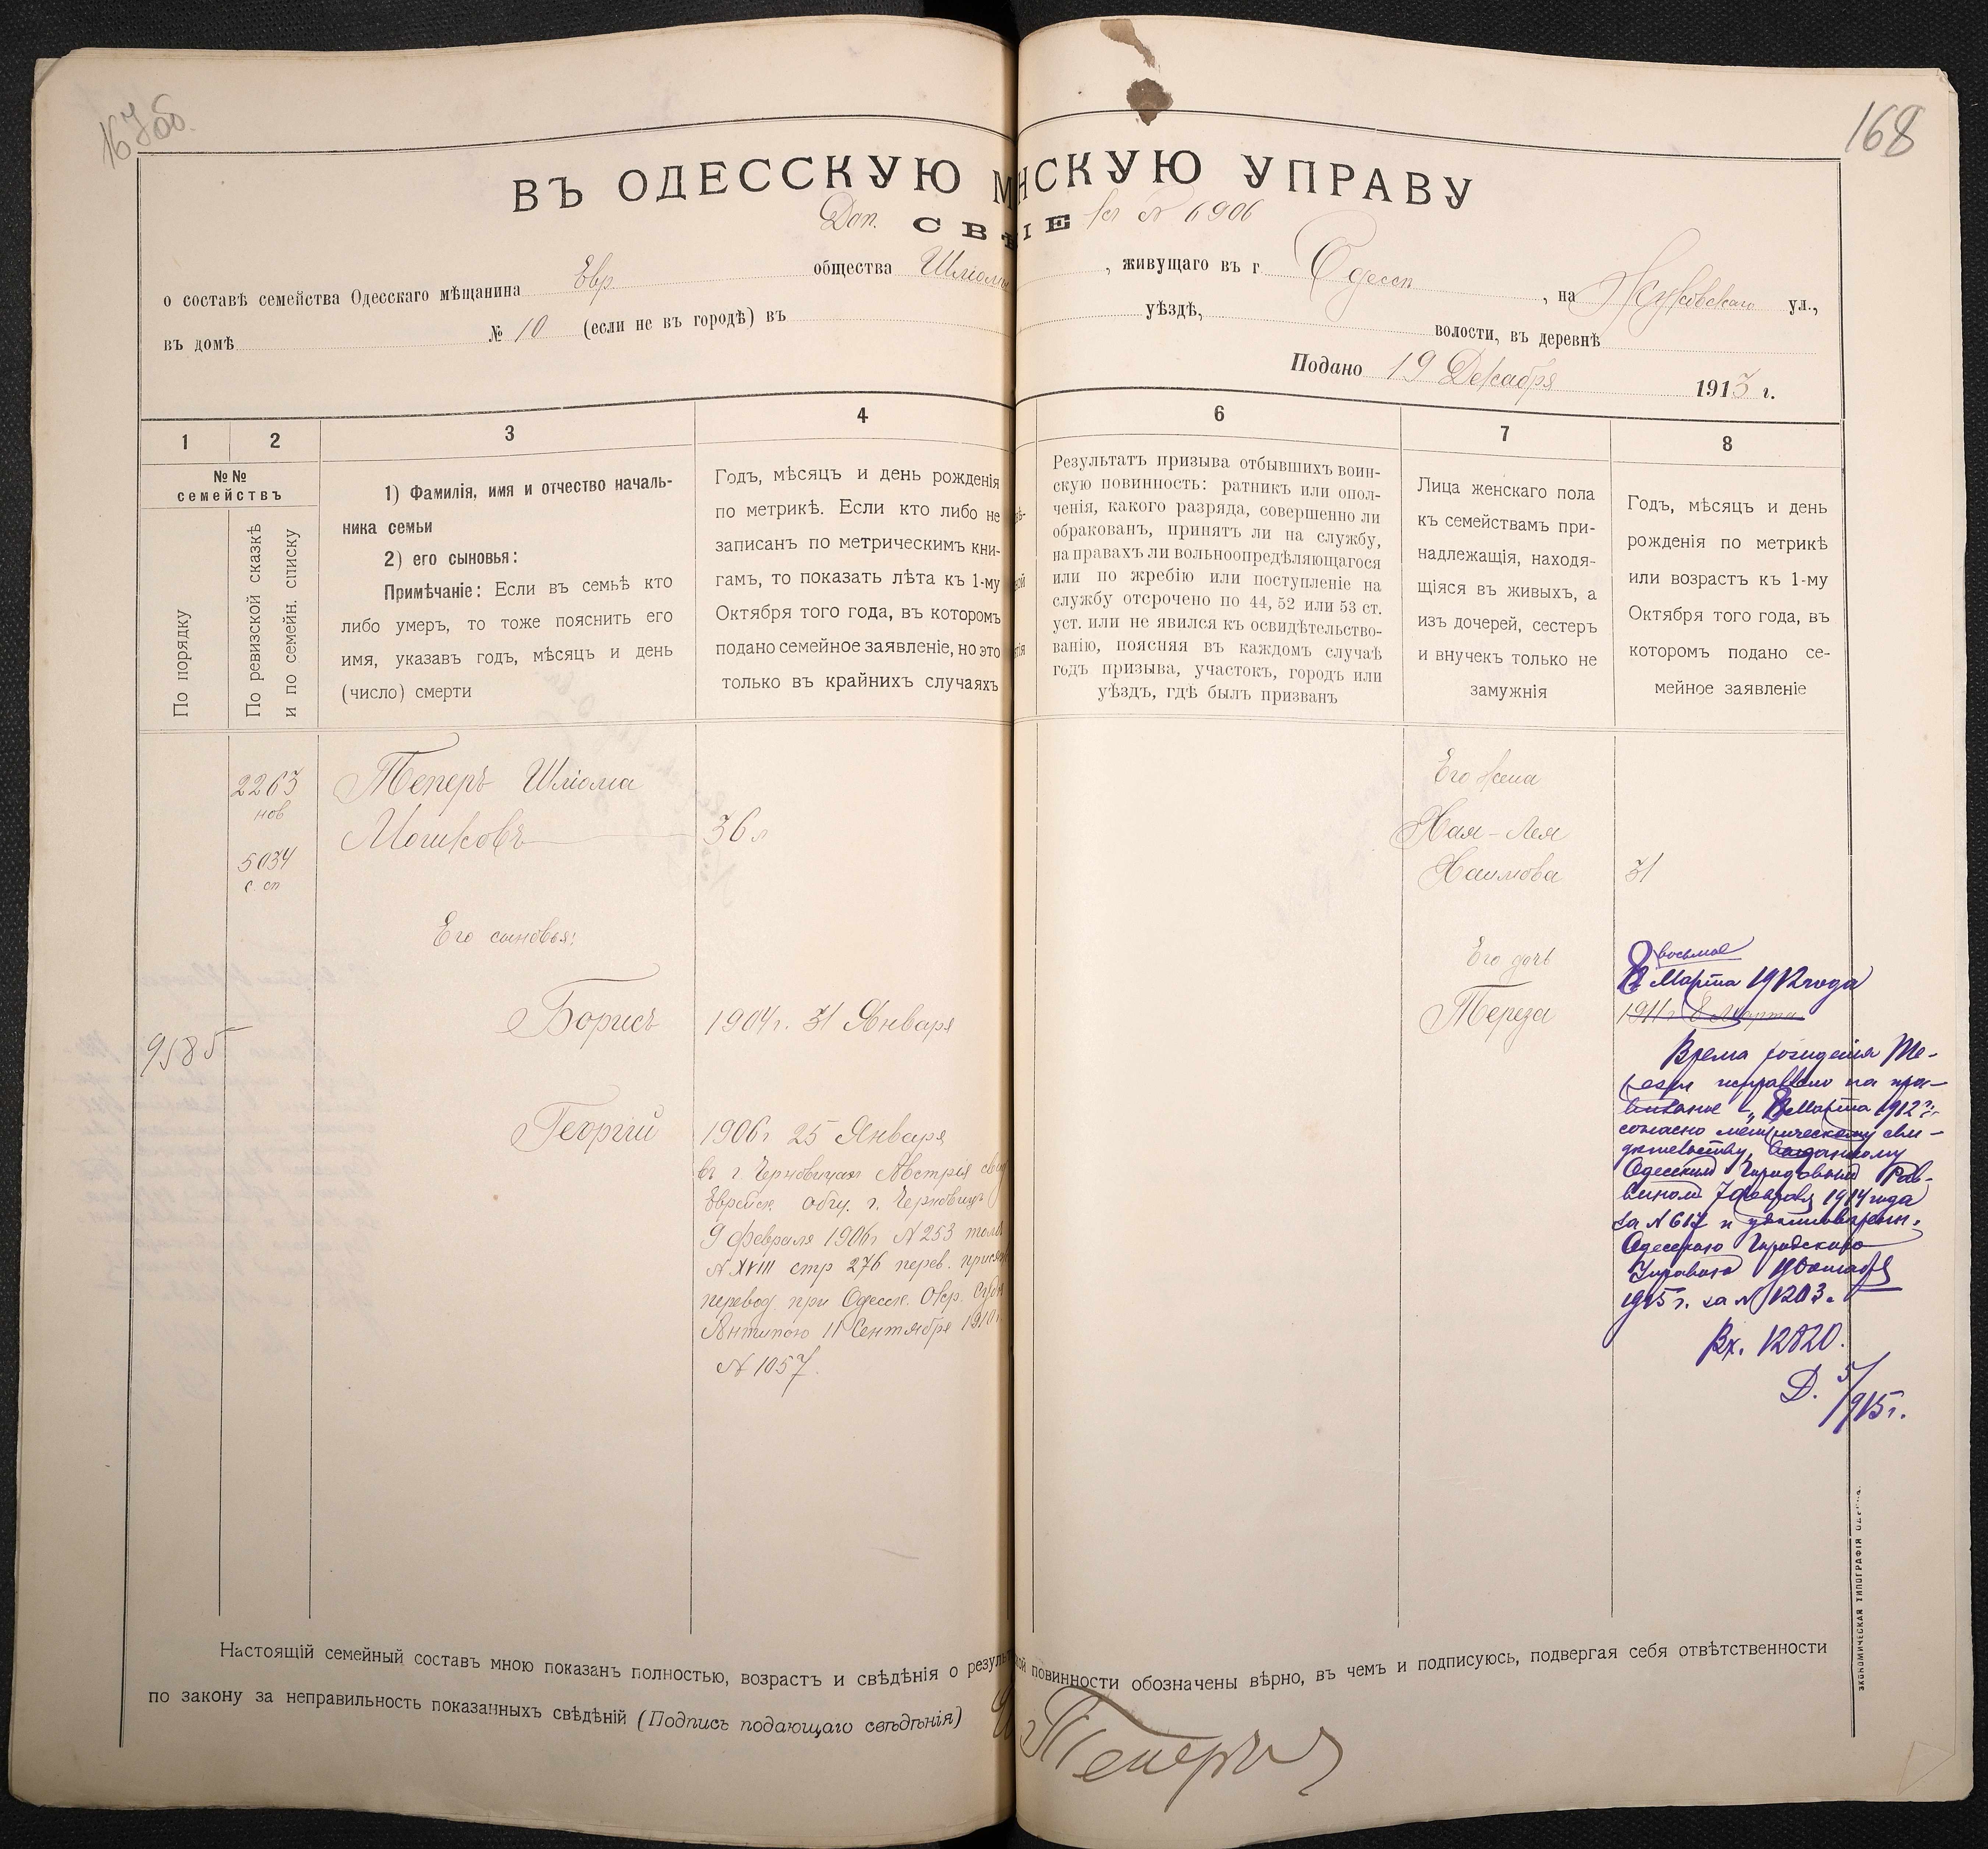 167об.
168
ВЪ ОДЕССКУЮ М НСКУЮ УПРАВУ
Доп. СВѢ ІЕ к N 6906
о составѣ семейства Одесскаго мѣщанина Евр. общества Шліомы , живущаго въ г. Одессѣ , на Жуковскаго ул.,
въ домѣ № 10 (если не въ городѣ) въ уѣздѣ, волости, въ деревнѣ
Подано 19 Декабря 1913 г.
1
2
3
4
6
7
8
№№
семействъ
По порядку
По ревизской сказкѣ
и по семейн. списку
1) Фамилія, имя и отчество началь-
ника семьи
2) его сыновья:
Примѣчаніе: Если въ семьѣ кто
либо умеръ, то тоже пояснить его
имя, указавъ годъ, мѣсяцъ и день
(число) смерти
Годъ, мѣсяцъ и день рожденія
по метрикѣ. Если кто либо не
записанъ по метрическимъ кни-
гамъ, то показать лѣта къ 1-му
Октября того года, въ которомъ
подано семейное заявленіе, но это
только въ крайнихъ случаяхъ
Результатъ призыва отбывшихъ воин-
скую повинность: ратникъ или опол-
ченія, какого разряда, совершенно ли
обракованъ, принятъ ли на службу,
на правахъ ли вольноопредѣляющагося
или по жребію или поступленіе на
службу отсрочено по 44, 52 или 53 ст.
уст. или не явился къ освидѣтельство-
ванію, поясняя въ каждомъ случаѣ
годъ призыва, участокъ, городъ или
уѣздъ, гдѣ былъ призванъ
Лица женскаго пола
къ семействамъ при-
надлежащія, находя-
щіяся въ живыхъ, а
изъ дочерей, сестеръ
и внучекъ только не
замужнія
Годъ, мѣсяцъ и день
рожденія по метрикѣ
или возрастъ къ 1-му
Октября того года, въ
которомъ подано се-
мейное заявленіе
2263
нов
5034
с. сп
Теперъ Шліома
Мошковъ
36 л
Его сыновья:
9585
Борисъ
1904 г. 31 Января
Георгій
1906 г 25 Января
въ г. Черновицахъ Австрія свид
Еврейск. общ. г. Черновицъ
9 февраля 1906 г N 253 томъ
N XVIII стр 276 перев. присяж
перевод. при Одесск. Окр. Судѣ
Антипою 11 Сентября 1910 г
N 1057.
Его жена
Хая-Лея
Хаимова
31
Его дочь
Тереза
восьмое
8 Марта 1912 года
1911 г. 8 Марта
Время рожденія Те-
резы исправлено на про-
тивъ „8 Марта 1912 г."
согласно метрическому сви-
дѣтельству, выданному
Одесскимъ Городовымъ Рав-
виномъ 7 февраля 1914 года
за N 617 и удостовѣренн.
Одесскою Городскою
Управою
1915 г. за N 1203.
Вх. 12820.
Д. 5/1915 г.
Настоящій семейный составъ мною показанъ полностью, возрастъ и свѣдѣнія о резуль ой повинности обозначены вѣрно, въ чемъ и подписуюсь, подвергая себя отвѣтственности
по закону за неправильность показанныхъ свѣдѣній (Подпись подающаго свѣдѣнія) Ш. Теперъ
ЭКОНОМИЧЕСКАЯ ТИПОГРАФІЯ